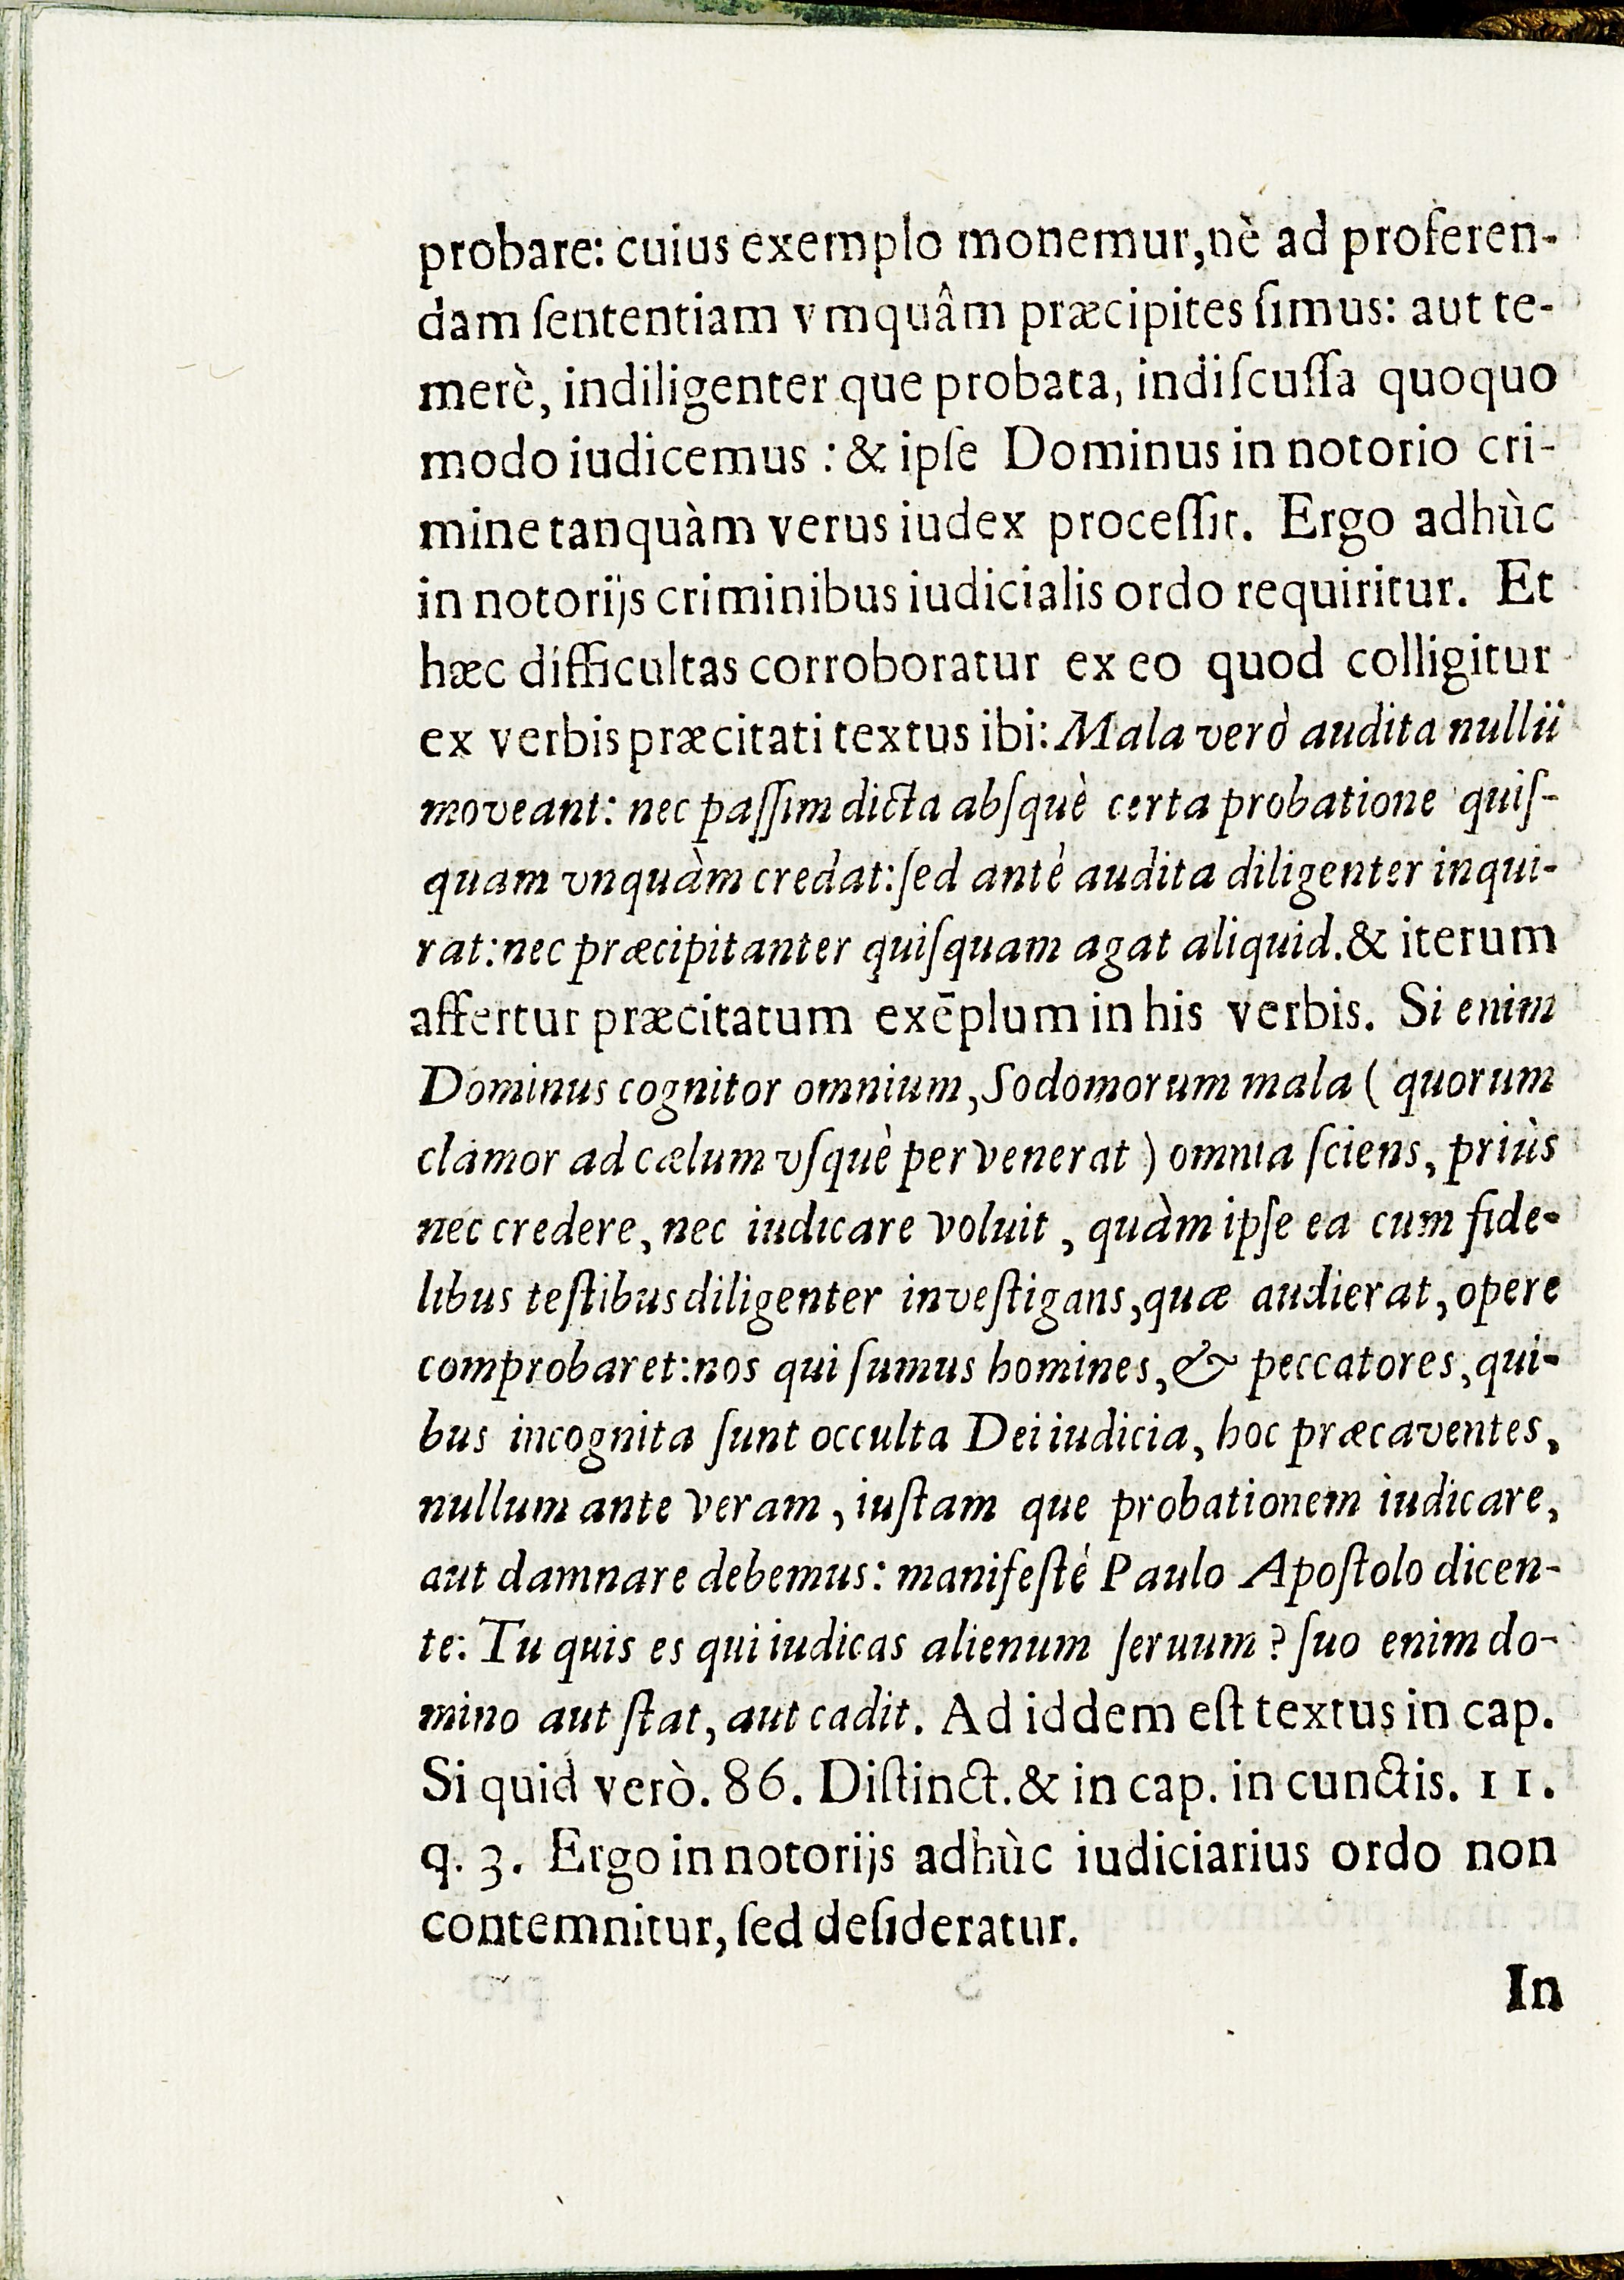 probare: cuius exemplo monemur, nè ad proferen-
dam ſententiam vmquâm præcipites ſimus: aut te-
merè, indiligenter que probata, indiſcuſſa quoquo
modo iudicemus : & ipſe Dominus in notorio cri-
mine tanquàm verus iudex proceſſit. Ergo adhùc
in notorijs criminibus iudicialis ordo requiritur. Et
hæc difficultas corroboratur ex eo quod colligitur
ex verbis præcitati textus ibi: Mala verò audita nullũ
moveant: nec paſſim dicta abſquè certa probatione quiſ-
quam vnquàm credat: ſed antè audita diligenter inqui-
rat: nec præcipitanter quiſquam agat aliquid. & iterum
affertur præcitatum exēplum in his verbis. Si enim
Dominus cognitor omnium, Sodomorum mala ( quorum
clamor ad cælum vſquè pervenerat ) omnia ſciens, priùs
nec credere, nec iudicare voluit, quàm ipſe ea cum fide-
libus teſtibus diligenter inveſtigans, quæ audierat, opere
comprobaret: nos qui ſumus homines, & peccatores, qui-
bus incognita ſunt occulta Dei iudicia, hoc præcaventes,
nullum ante veram, iuſtam que probationem iudicare,
aut damnare debemus: manifeſtè Paulo Apoſtolo dicen-
te: Tu quis es qui iudicas alienum ſeruum? ſuo enim do-
mino aut ſtat, aut cadit. Ad iddem eſt textus in cap.
Si quid verò. 86. Diſtinct. & in cap. in cunctis. 11.
q. 3. Ergo in notorijs adhùc iudiciarius ordo non
contemnitur, ſed deſideratur.
In